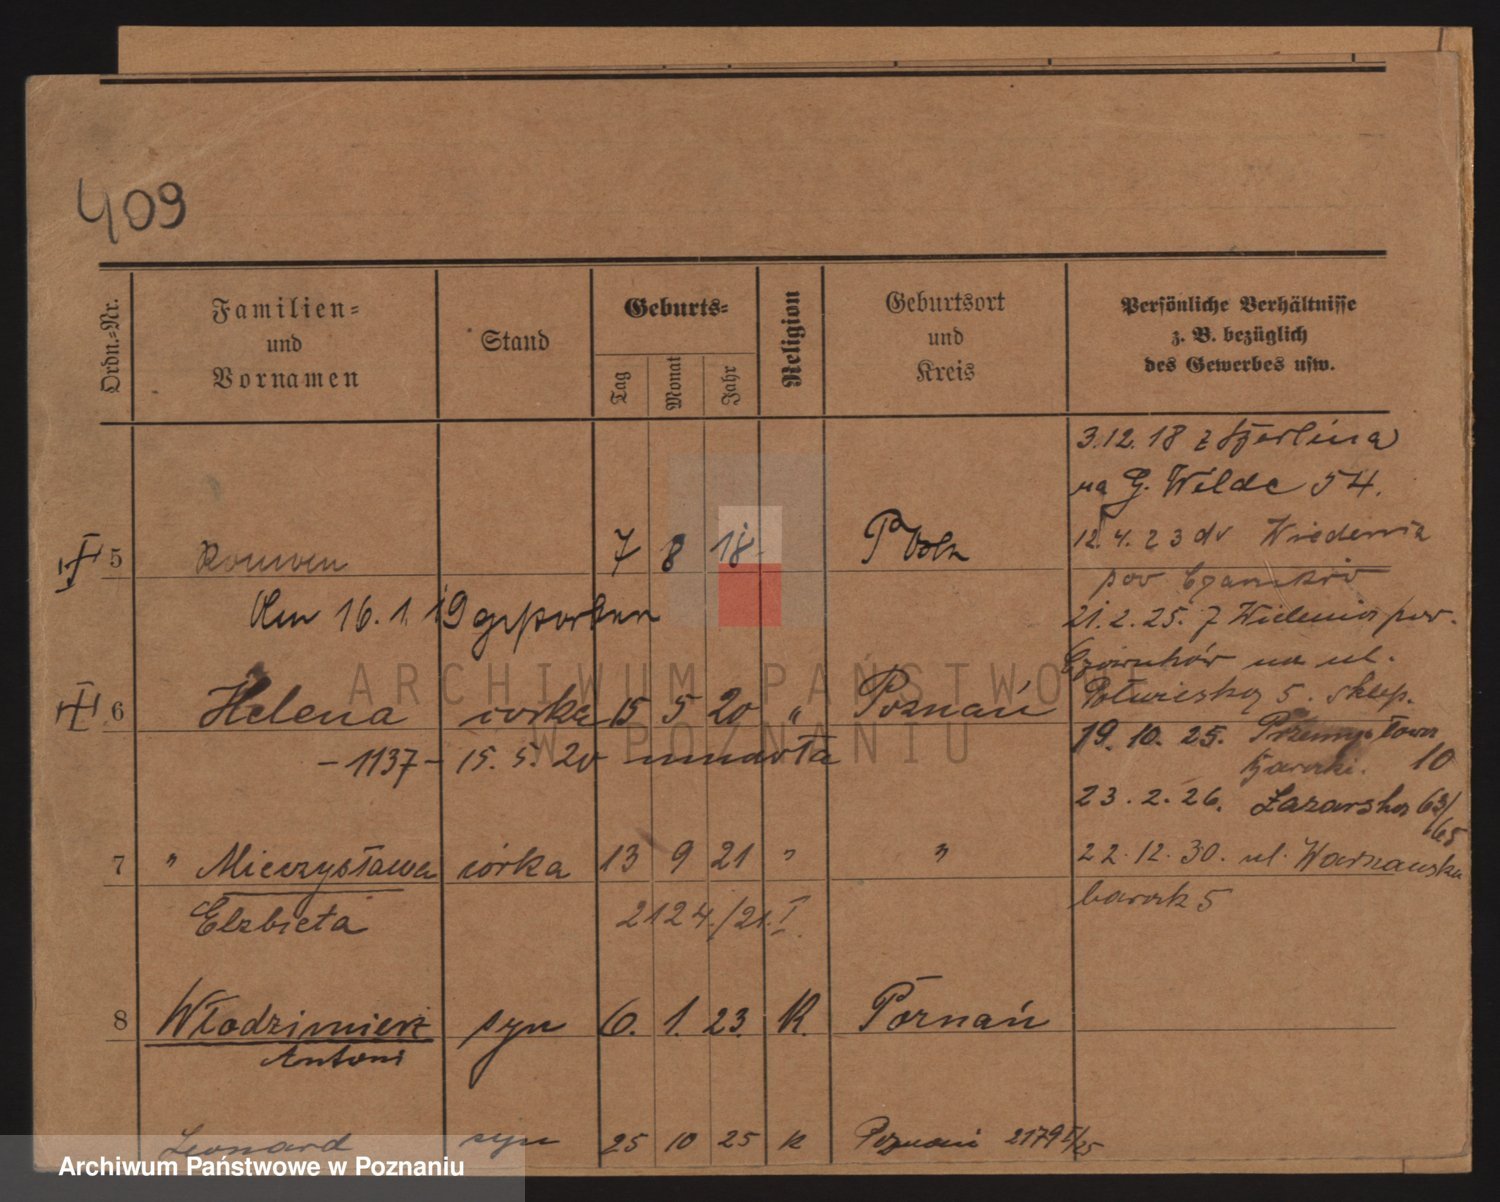 409
Ordn.-Nr.
Familien-
und
Vornamen
Stand
Geburts-
Tag
Monat
Jahr
Religion
Geburtsort
und
Kreis
Persönliche Verhältnisse
z. B. bezüglich
des Gewerbes usw.
3.12.18 z Berlina
na G. Wilde 54.
12.4.23 do
pow
21.2.25. z
na ul.
5. sklep.
19.10.25. Przemysłowa
baraki. 10
23.2.26. Łazarska 63/
65
22.12.30. ul. Warszawska
barak 5
5 Roman 7 8 18.
Am 16.1.19 gestorben
6 Helena córka 15 5 20 " Poznań
-1137- 15.5.20 umarła
7 " Mieczysława córka 13 9 21 " "
Elżbieta 2124/21.I
8 Włodzimierz syn 6. 1. 23. K. Poznań
Antoni
Leonard syn 25 10 25 K Poznań 2179 I/25
ARCHIWUM PAŃSTWOWE
W POZNANIU
Archiwum Państwowe w Poznaniu